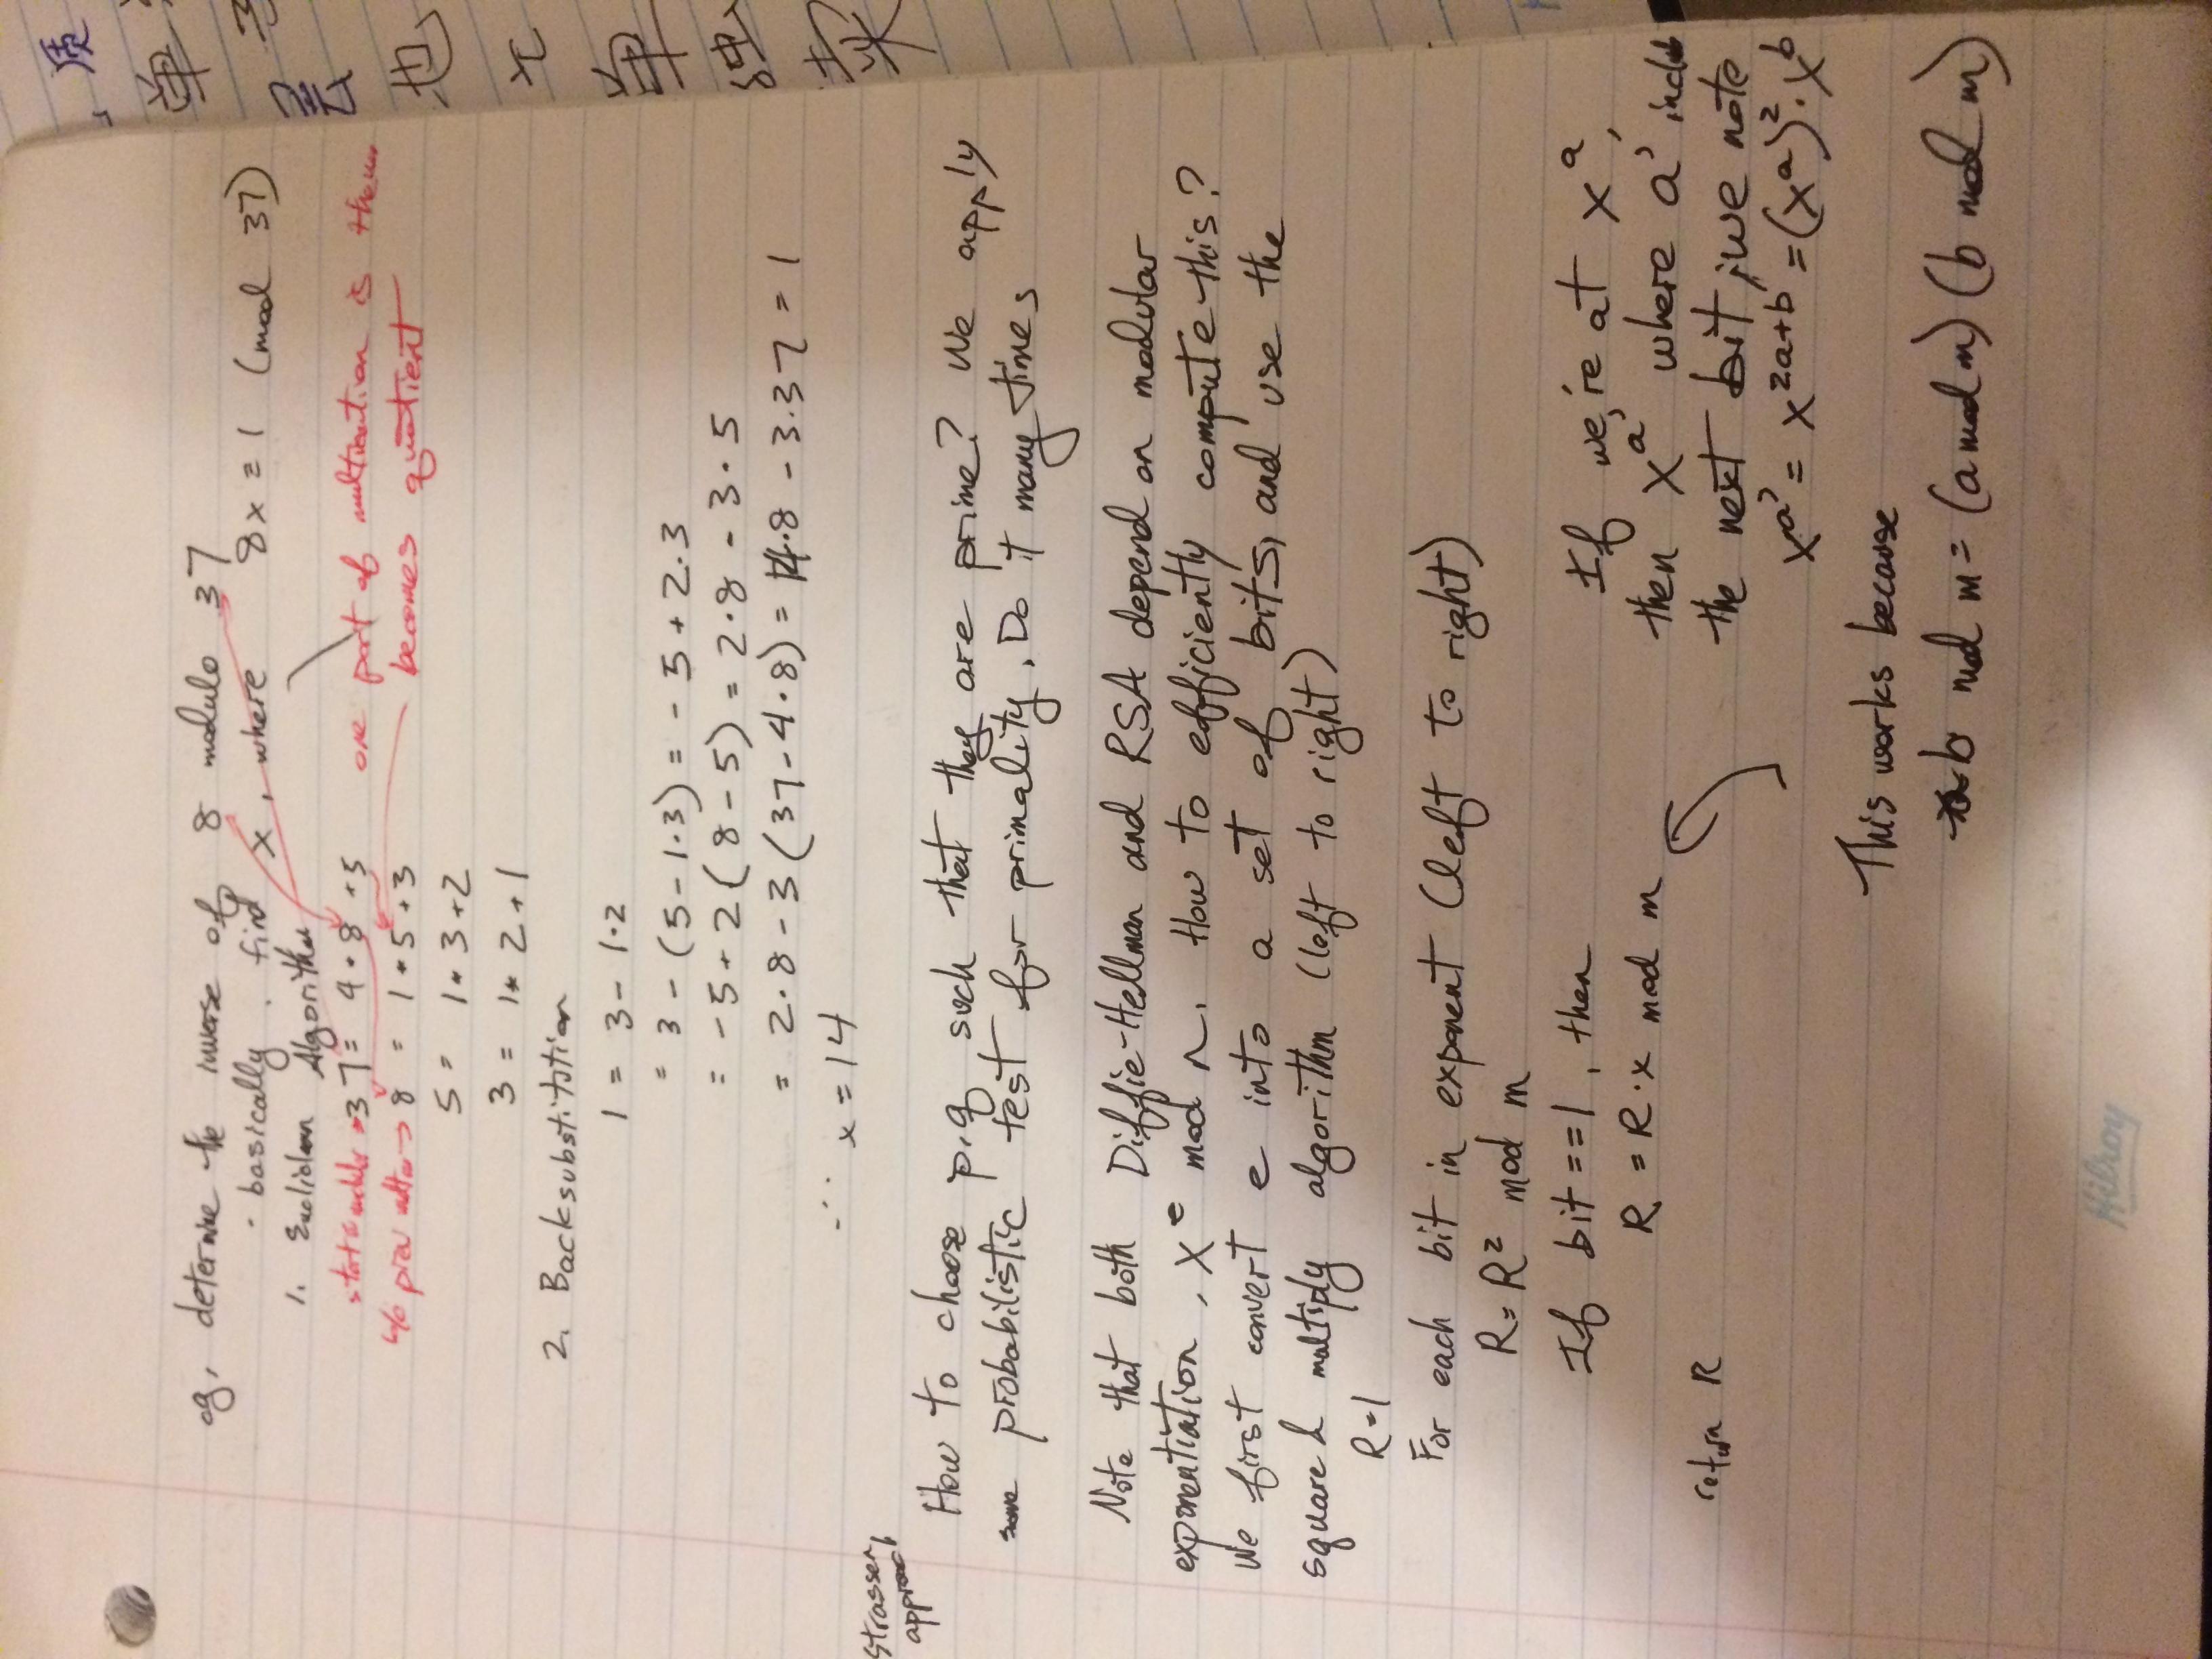 eg, determine the inverse of 8 modulo 37
· basically, find x, where 8x ≡ 1 (mod 37)
1. Euclidean Algorithm
37 = 4 * 8 + 5
8 = 1 * 5 + 3
one part of becomes quotient
5 = 1 * 3 + 2
3 = 1 * 2 + 1
2. Backsubstitution
1 = 3 - 1·2
= 3 - (5 - 1·3) = - 5 + 2·3
= -5 + 2(8 - 5) = 2·8 - 3·5
= 2·8 - 3(37 - 4·8) = 14·8 - 3·37 = 1
∴ x = 14
Strassen
approach
How to choose p,q such that they are prime? We apply
some probabilistic test for primality. Do it many times
Note that both Diffie-Hellman and RSA depend on modular
exponentiation, x^e mod n. How to efficiently compute this?
We first convert e into a set of bits, and use the
square & multiply algorithm (left to right)
R=1
For each bit in exponent (left to right)
R = R² mod m
If bit == 1, then
R = R·x mod m
return R
If we're at x^a,
then x^a' where a'
the next bit, we note
x^a' = x^(2a+b) = (x^a)²·x^b
This works because
ab mod m = (a mod m) (b mod m)
Hilroy
质
单
也
单